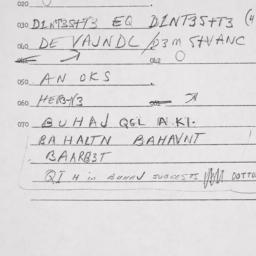 020
030 DINT35+T3 EQ DINT35+T3 (4
040 DE VAJNDL /03M S+VANC
050 AN OKS
060 HEB3N3
070 BUHAJ QGL A KI.
BAHALTN BAHAVNT
BAARB3T
QI H in BUHAJ SUGGESTS DOTTE